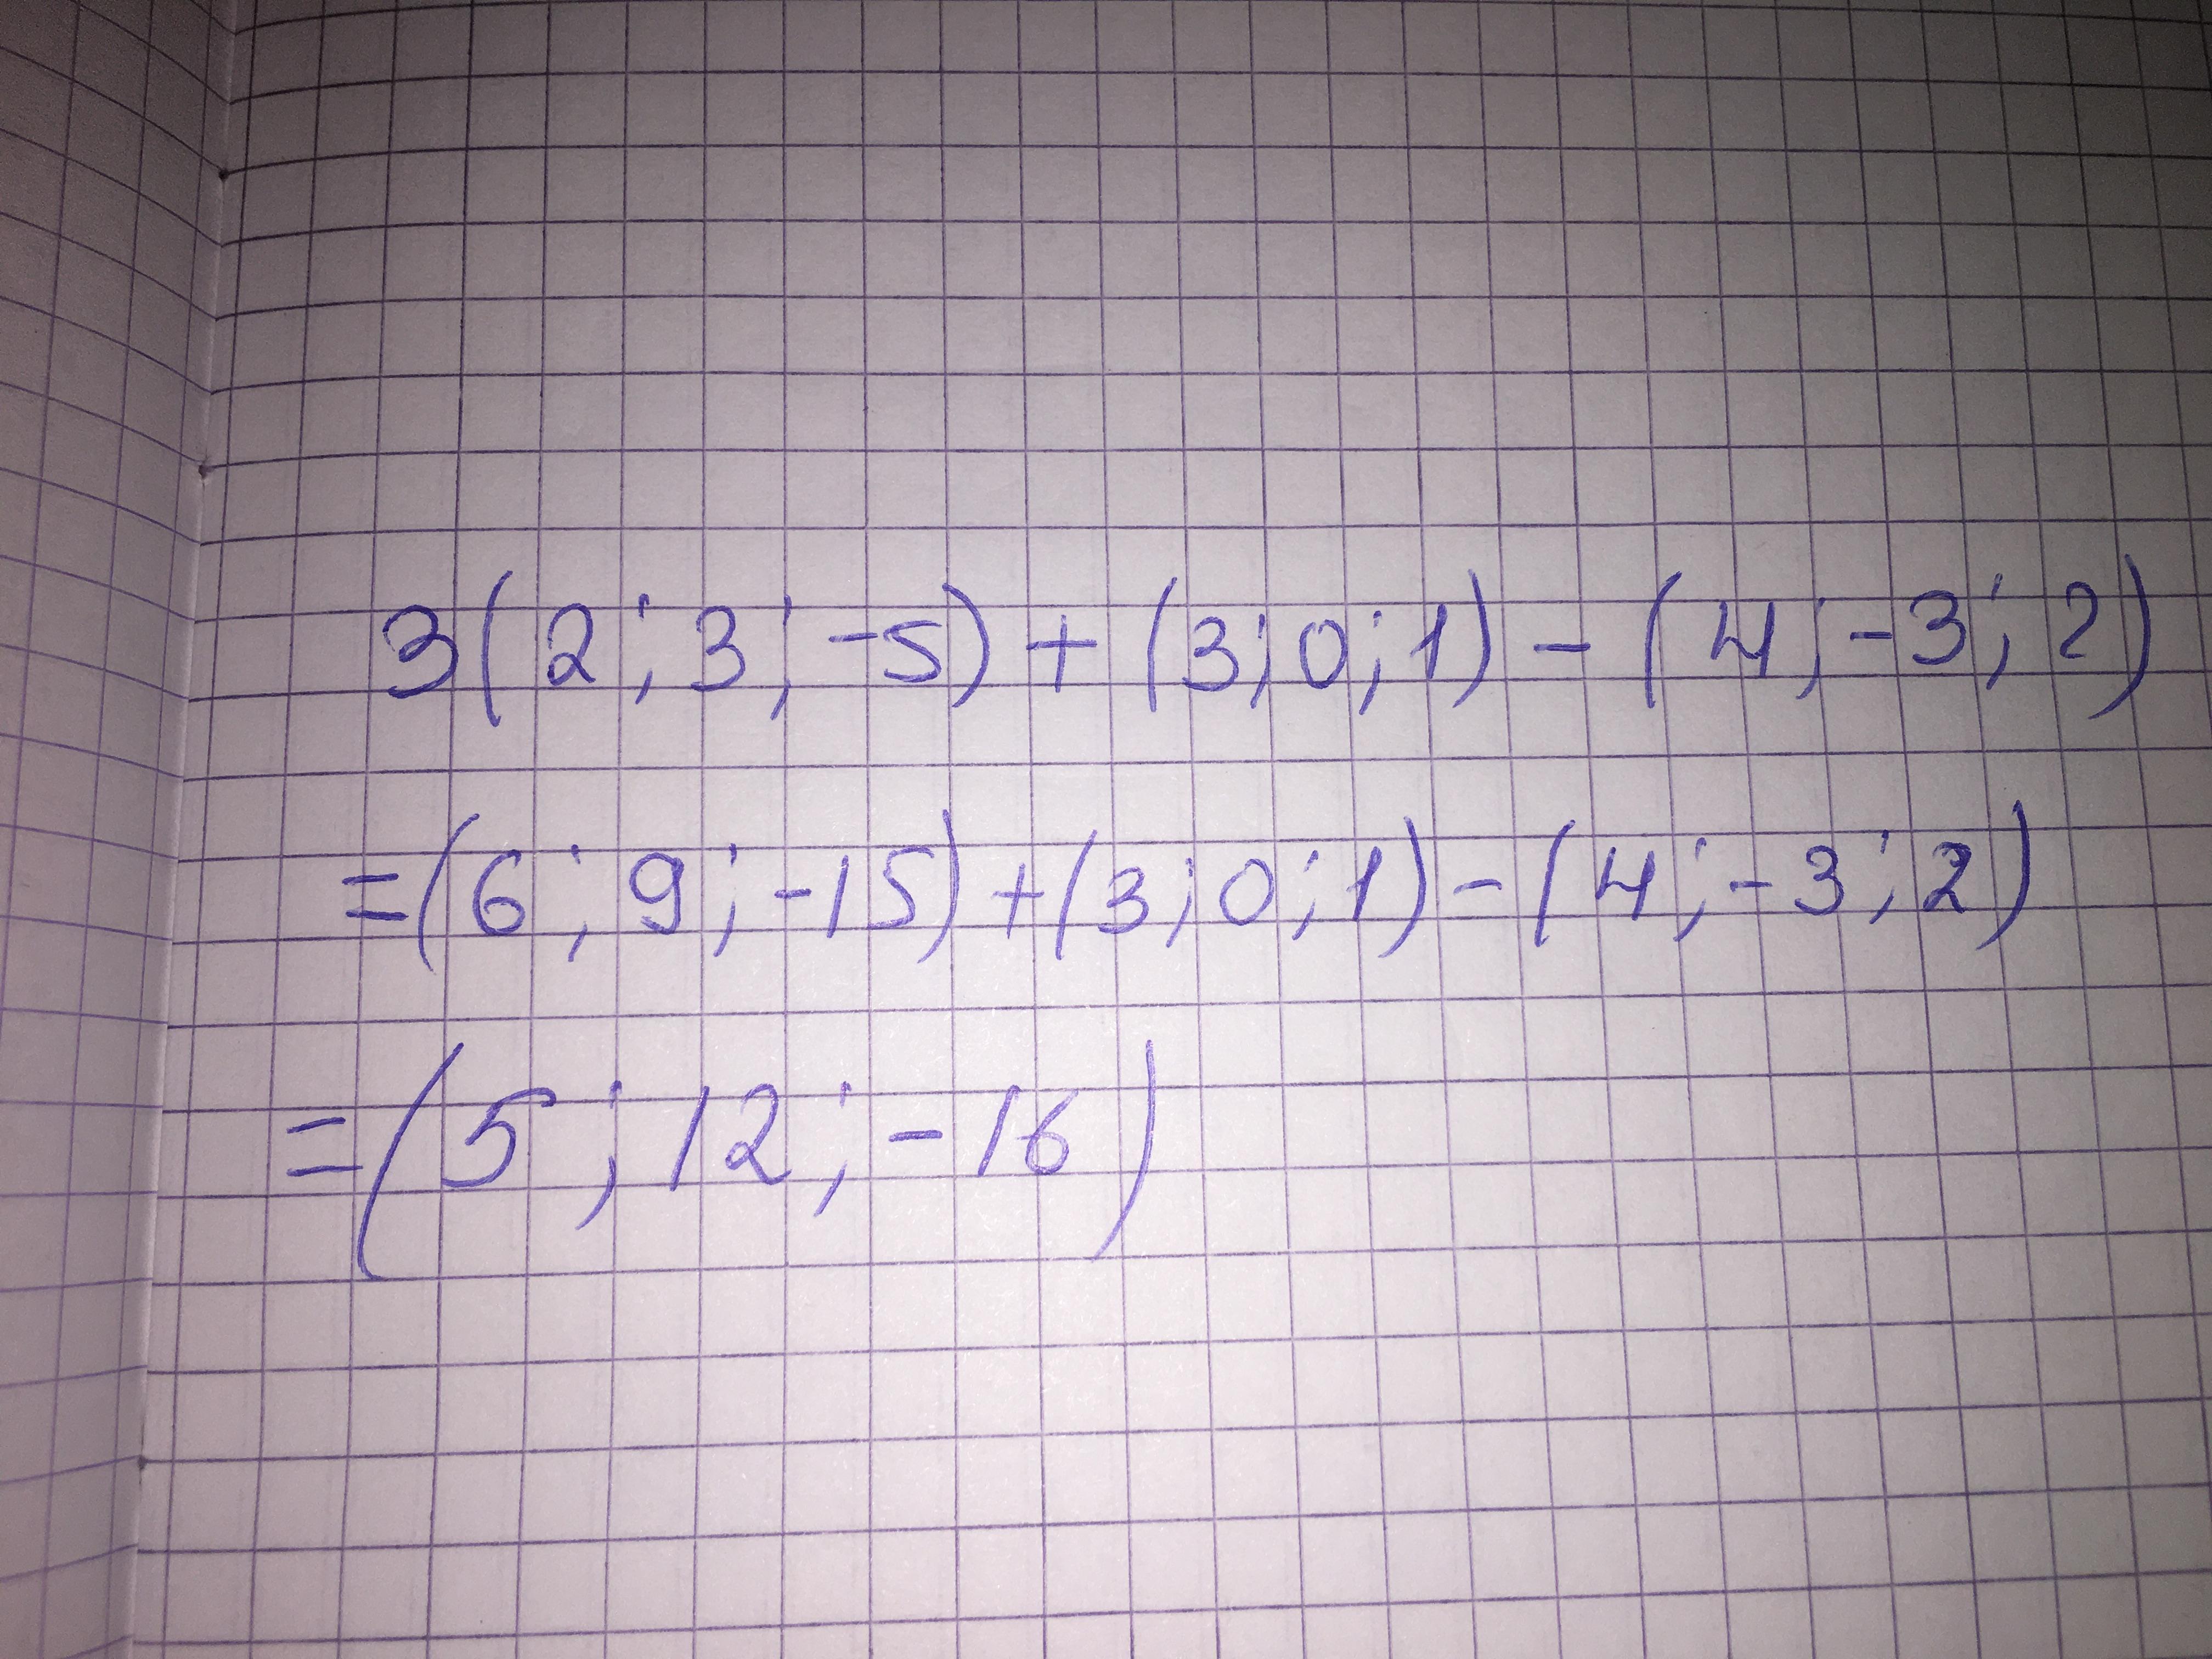 3(2;3;-5)+(3;0;1)-(4;-3;2)
=(6;9;-15)+(3;0;1)-(4;-3;2)
=(5;12;-16)